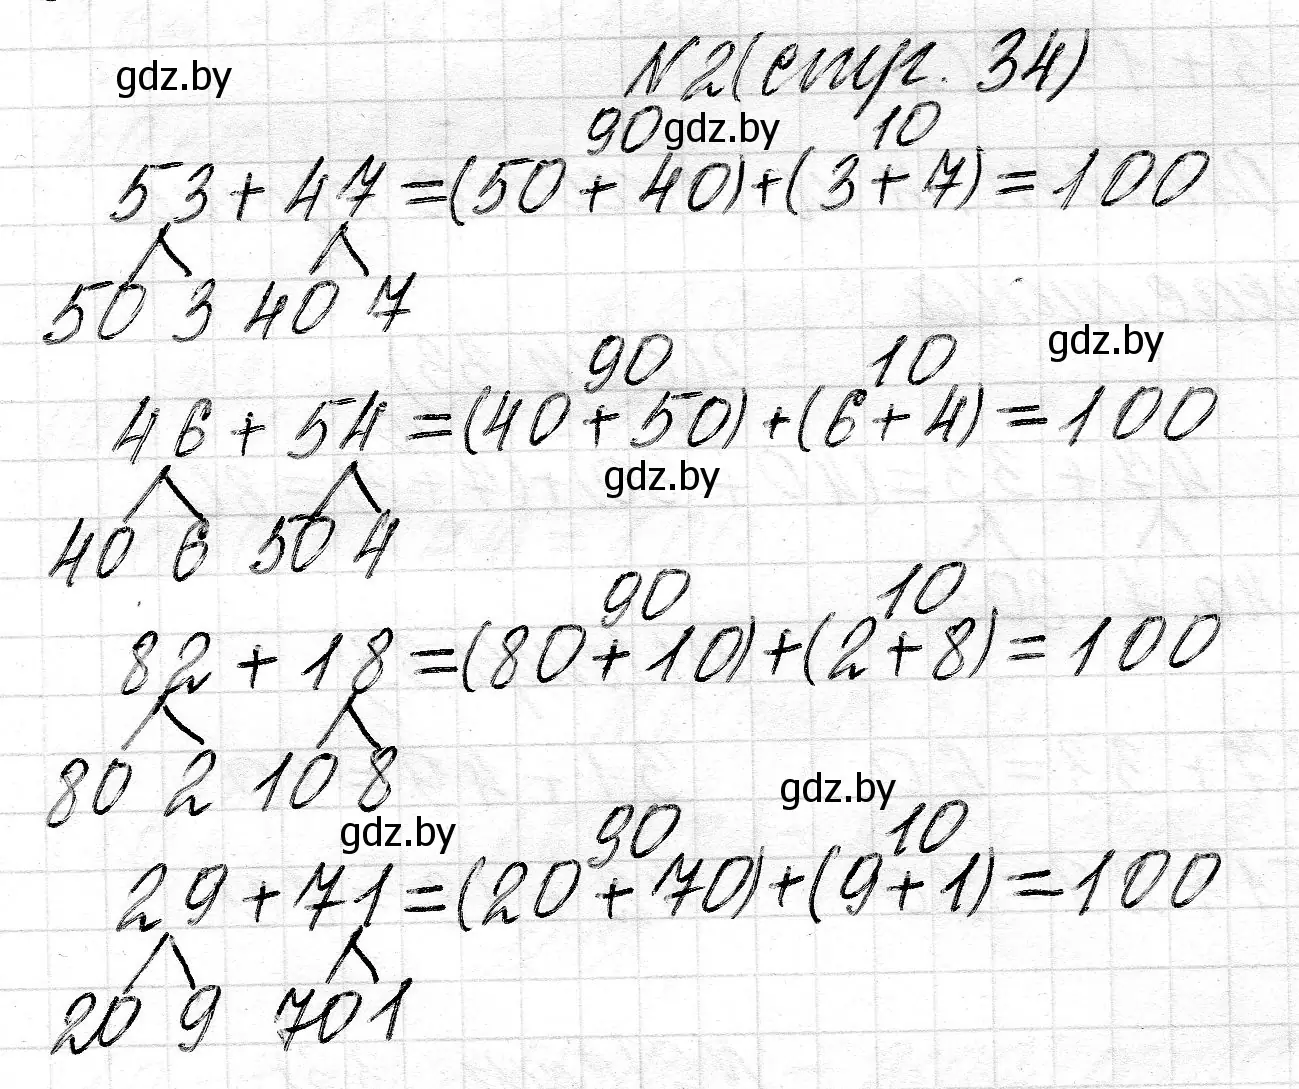 gdz.by
№2(стр. 34)
90 gdz.by 10
53+47=(50+40)+(3+7)=100
50 3 40 7
90 10 gdz.by
46+54=(40+50)+(6+4)=100
gdz.by
40 6 50 4
90 10
82+18=(80+10)+(2+8)=100
80 2 10 8
gdz.by
gdz.by 90 10
29+71=(20+70)+(9+1)=100
20 9 70 1